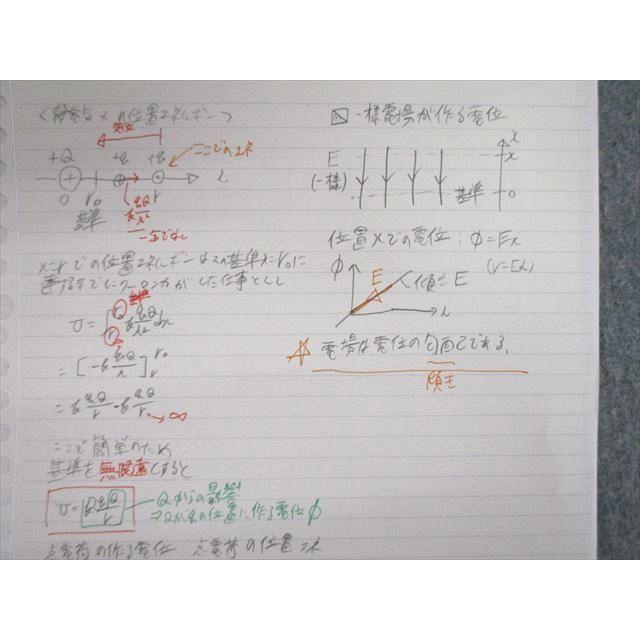 の位置エネルギー>
+Q +q +q
ここでのエネ
0 r₀ r
基準
一定でない
x=rでの位置エネルギーはその基準x=r₀に
するまでにクーロン力がした仕事として
基準
U=∫ k qQ/x² dx
=[-k qQ/x]
=k qQ/r - k qQ/r₀ → ∞
ここで簡単のため
基準を無限遠とすると
U=k qQ/r
Qからの影響
⇒Qがqの位置に作る電位φ
点電荷の作る電位 点電荷の位置エネ
一様電場が作る電位
E
(一様)
x
基準 0
位置xでの電位:φ=Ex
(V=Ed)
φ E 傾きE
☆ 電場は電位の勾配である。
傾き